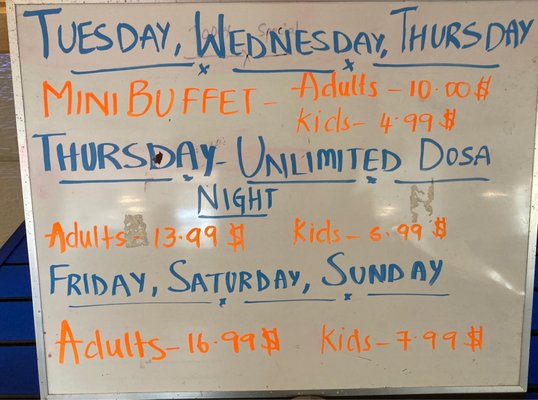 TUESDAY, WEDNESDAY, THURSDAY
MINI BUFFET - Adults - 10.00$
Kids - 4.99$
THURSDAY - UNLIMITED DOSA
NIGHT
Adults - 13.99$ Kids - 6.99$
FRIDAY, SATURDAY, SUNDAY
Adults - 16.99$ Kids - 7.99$